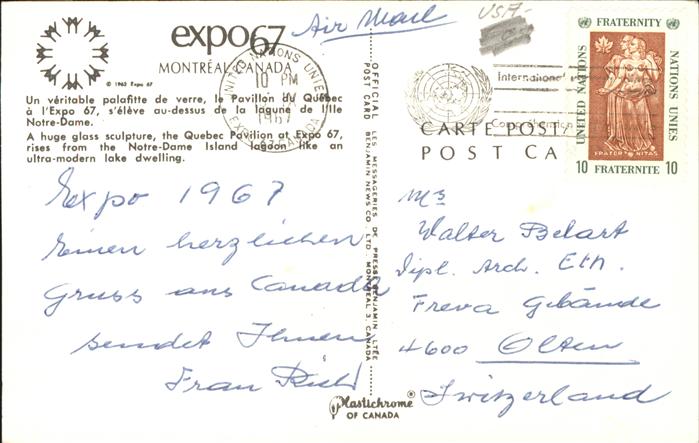 expo67
MONTRÉAL CANADA
© 1963 Expo 67
Air Mail
USA-
Un véritable palafitte de verre, le Pavillon du Québec
à l'Expo 67, s'élève au-dessus de la lagune de l'Ile
Notre-Dame.
A huge glass sculpture, the Quebec Pavilion at Expo 67,
rises from the Notre-Dame Island lagoon like an
ultra-modern lake dwelling.
UNITED NATIONS UNIES
10 PM
1967
CANADA
Expo 1967
Einen herzlichen
Gruss aus Canada
sendet Ihnen
Frau
OFFICIAL POST CARD
LES MESSAGERIES DE PRESSE BENJAMIN LTÉE
BENJAMIN NEWS CO. LTD. MONTREAL 3, CANADA
Plastichrome®
OF CANADA
International
CARTE POST
POST CA
FRATERNITY
UNITED NATIONS
NATIONS UNIES
FRATERNITAS
10 FRATERNITE 10
Walter Belart
Dipl. Arch. Eth.
Freva Gebäude
4600 Olten
Switzerland